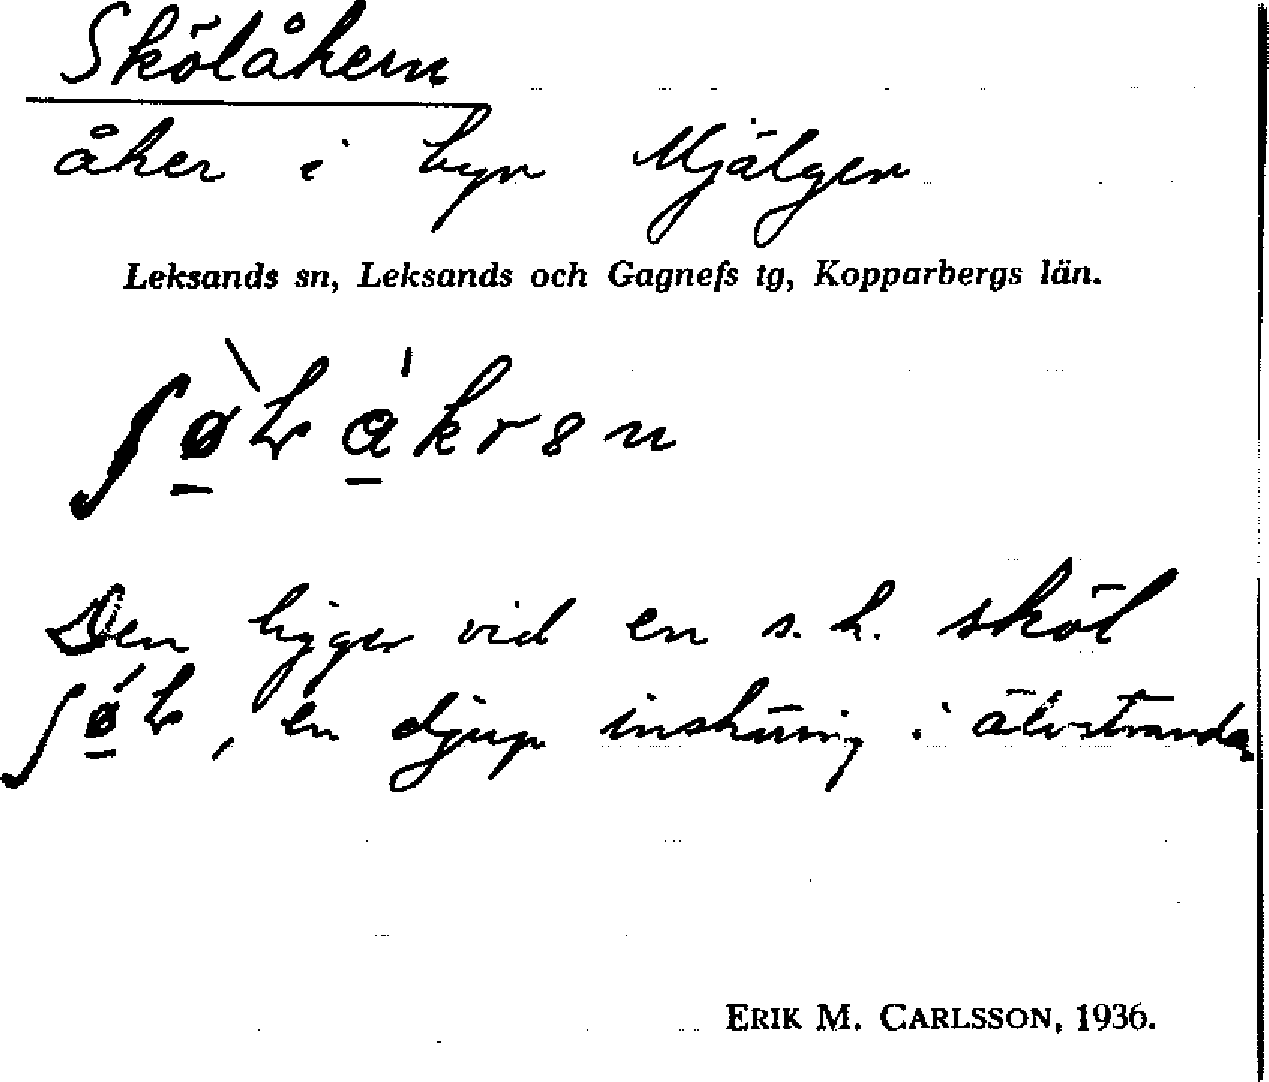 Skölåkern
åker i byn Mjälgen
Leksands sn, Leksands och Gagnefs tg, Kopparbergs län.
Den ligger vid en s.k. sköl
, en djup inskäring i älvstranden
ERIK M. CARLSSON, 1936.